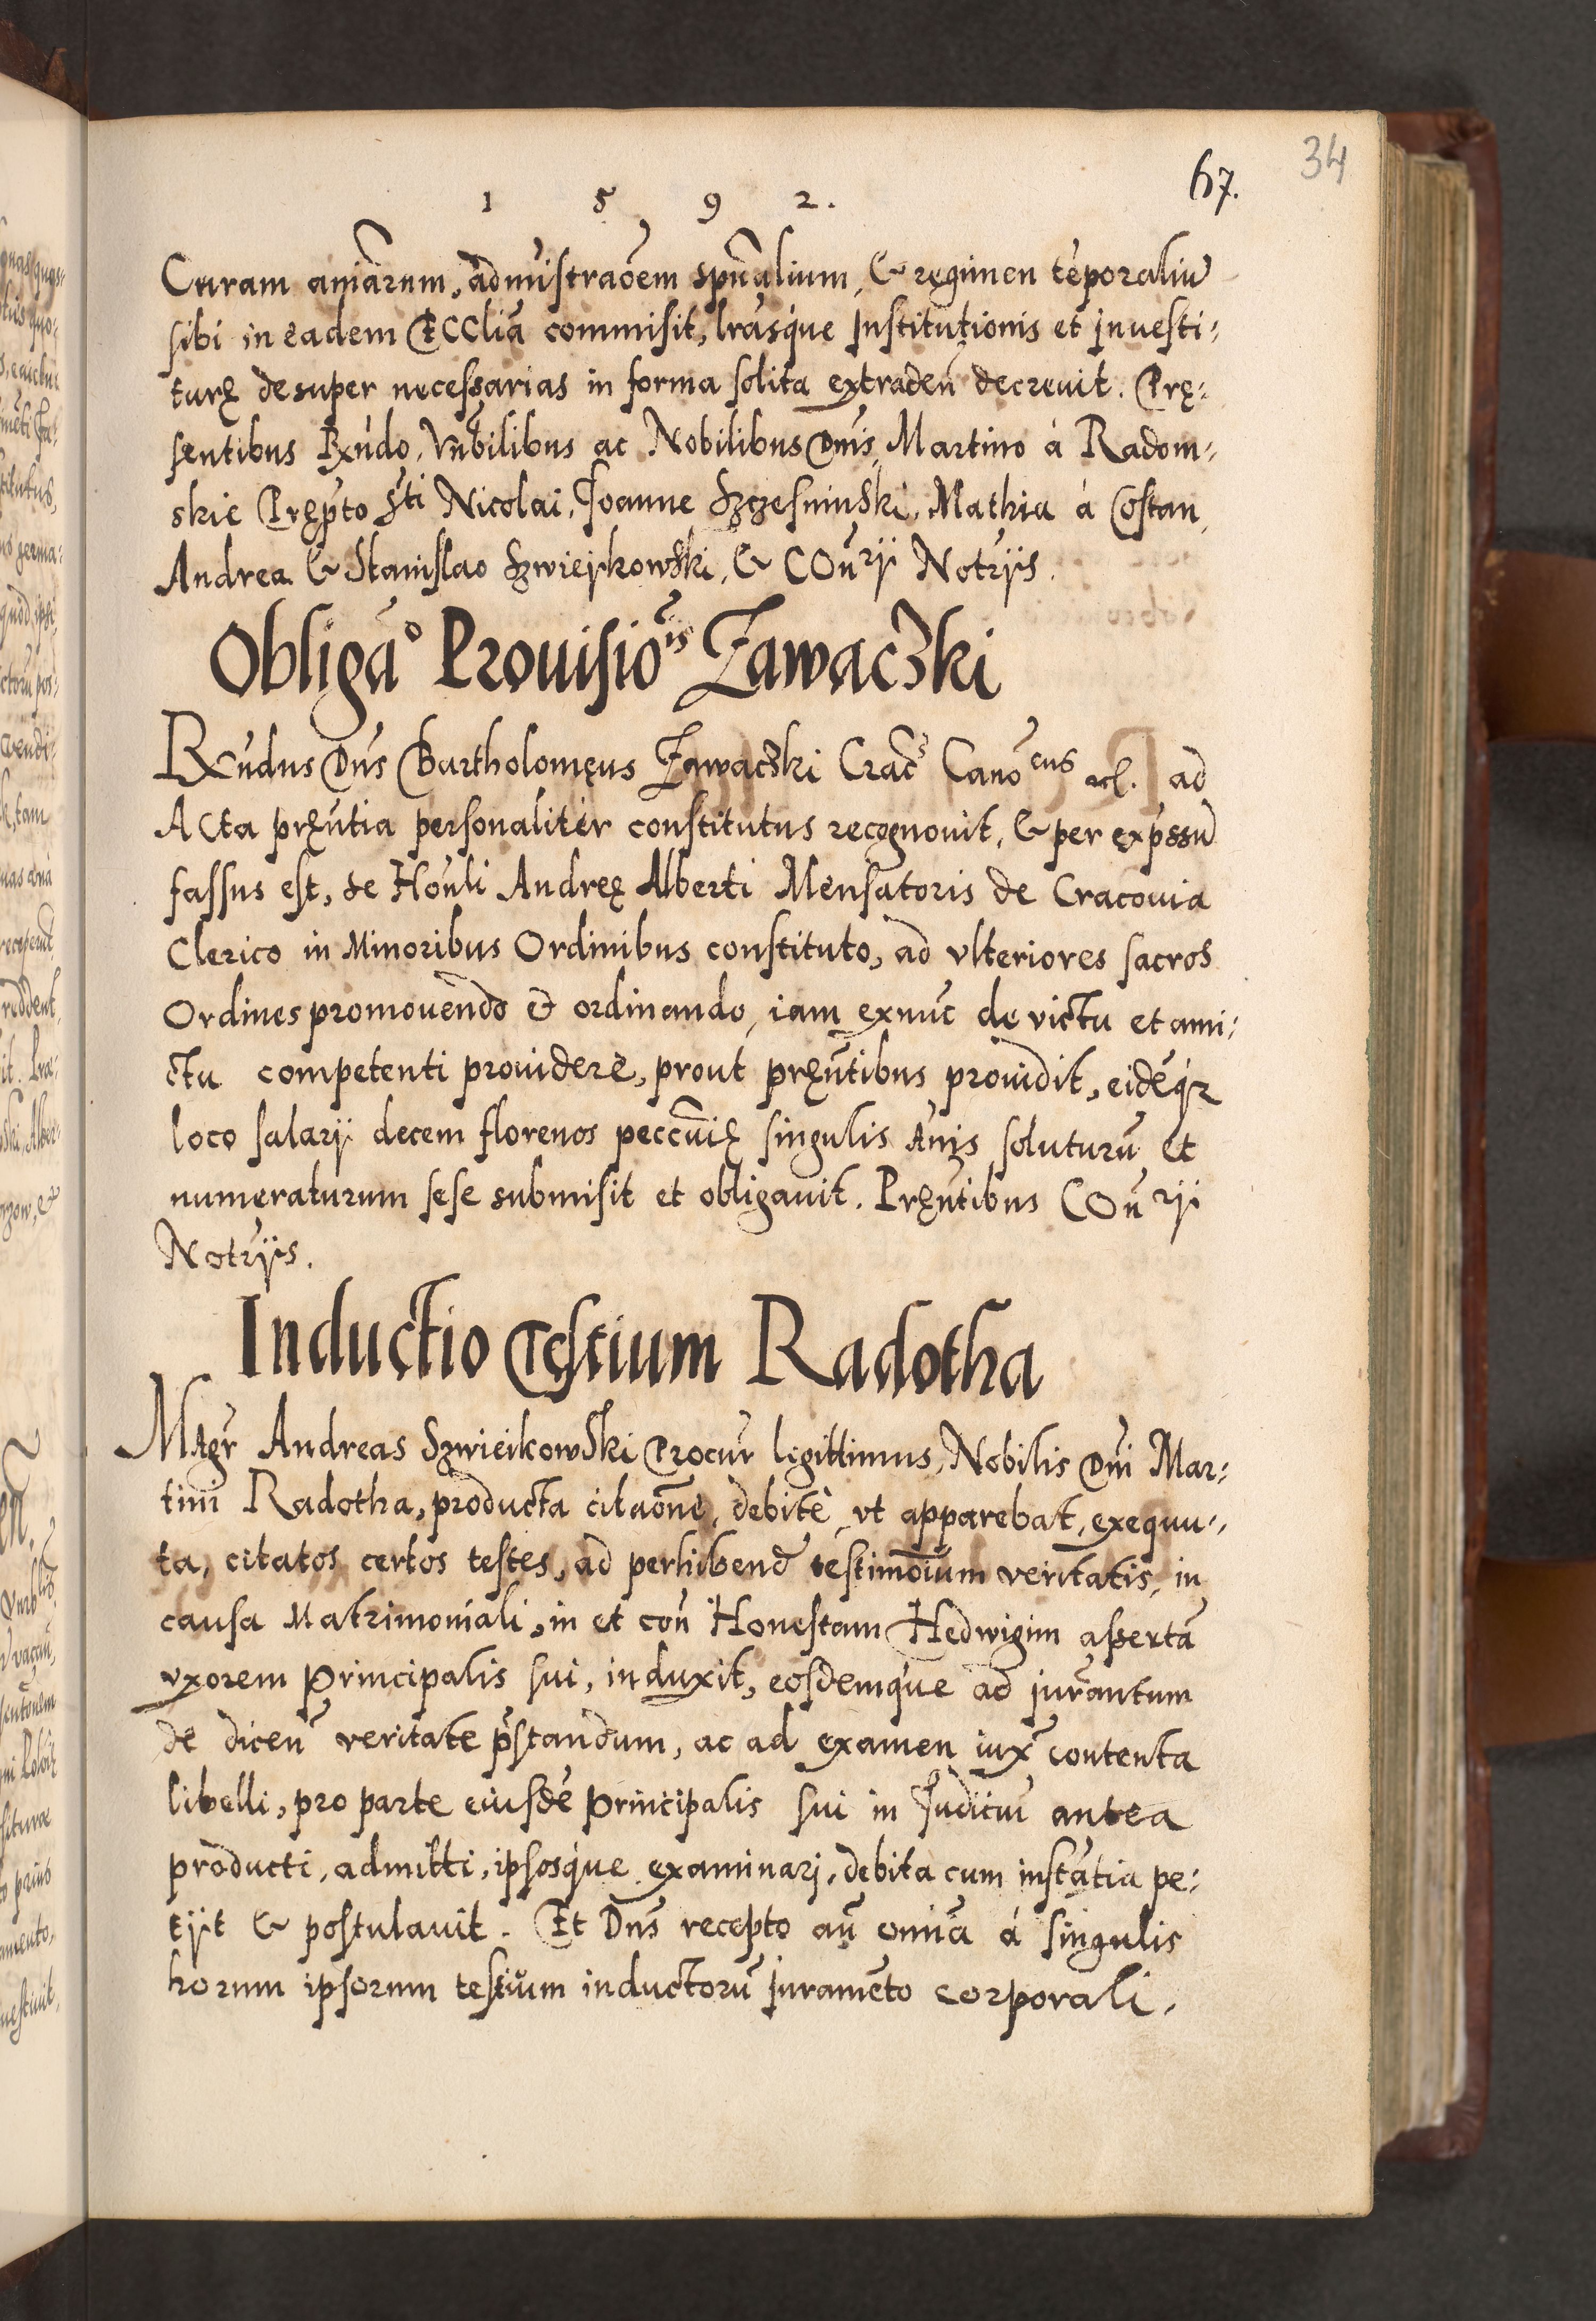 34
67.
1 5 9 2.
Curam aniarum, admistraoem spnualium, & regimen temporaliu
sibi in eadem ECCliã commisit, lrasque Institutionis et Investi:
turę desuper necessarias in forma solita extraden decrevit. Prę:
sentibus Rxndo, Vnbilibus ac Nobilibus Dnis, Martino à Radom:
skie Pręp̃to Sti Nicolai, Joanne Szczesninski, Mathia à Costan,
Andrea & Stanislao Szwieykowski, & COnrÿ Notrÿs.
Obligao Prouisiois Zawaczki
Rxndus Dns Bartholomęus Zawaczki Crac Canocus etc. ad
Acta pręntia personaliter constitutus recognouit, & per expssu
fassus est, se Honli Andreę Alberti Mensatoris de Cracouia
Clerico in Minoribus Ordinibus constituto, ad vlteriores sacros
Ordines promouendo & ordinando, iam exnuc de victu et ami:
ctu competenti prouidere, prout pręntibus prouidit, eideq3
loco salarÿ decem florenos peccunię singulis Anis soluturũ et
numeraturum sese submisit et obligauit. Pręntibus COnrÿ
Notrÿs.
Inductio Testium Radotha
Magr Andreas Szwieikowski Procur legittimus, Nobilis Dni Mar:
tini Radotha, producta citaone, debitè, vt apparebat, exequu:
ta, citatos certos testes, ad perhibend testimoium veritatis, in
causa Matrimoniali, in et con Honestam Hedwigim assertã
vxorem Principalis sui, induxit, eosdemque ad jurantum
de dicen veritate pstandum, ac ad examen iux contenta
libelli, pro parte eiusdẽ Principalis sui in Judiciũ antea
producti, admitti, ipsosque examinari, debita cum instãtia pe:
tÿt & postulauit. Et Dns recepto añ omia à singulis
horum ipsorum testium inductorũ juramẽto corporali,